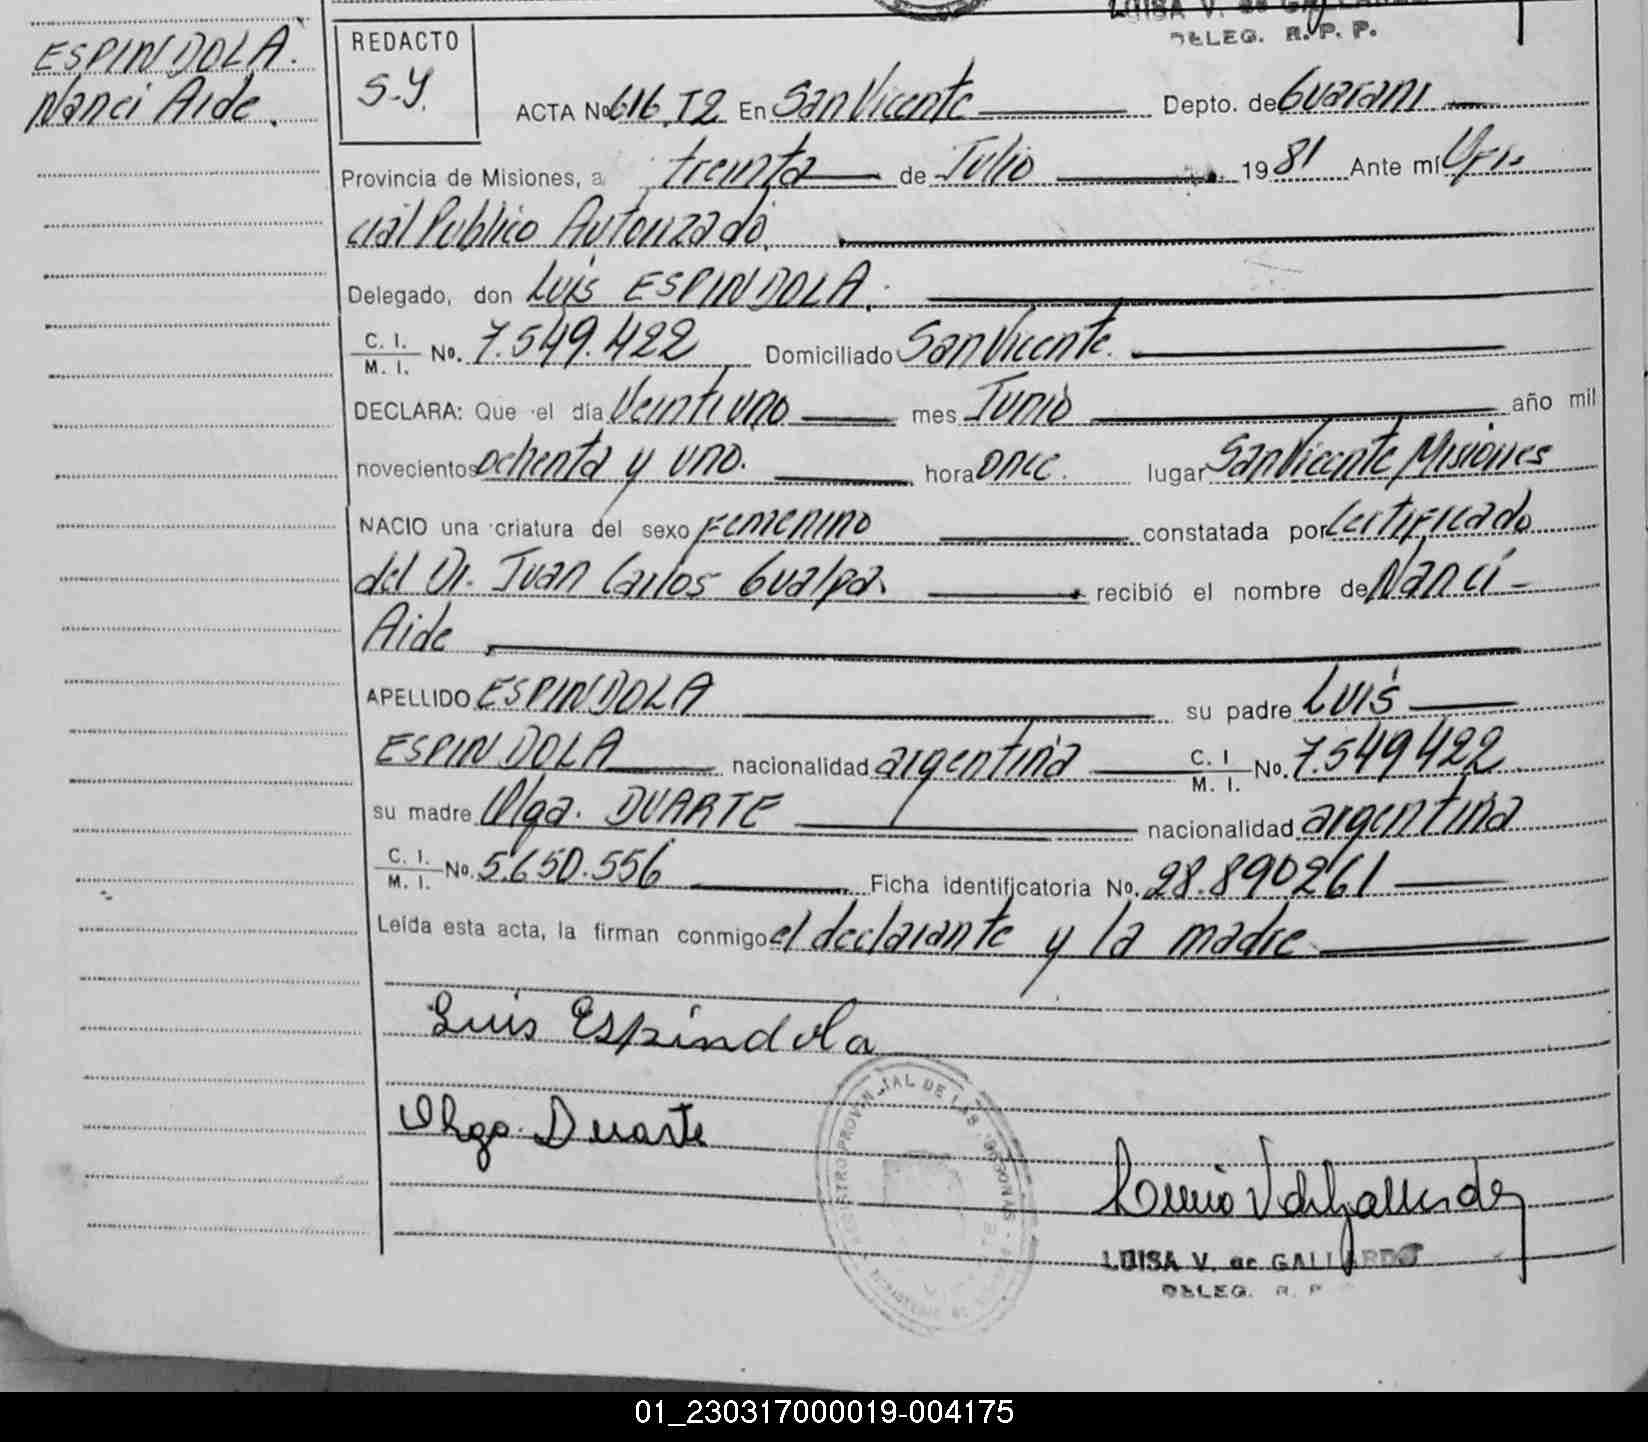 LUISA V. de GALLARDO
DELEG. R. P. P.
ESPINDOLA.
Nanci Aide.
REDACTO
S-Y.
ACTA No 616 T2 En San Vicente Depto. de Guarani
Provincia de Misiones, a treinta de Julio 1981 Ante mí Ofi-
cial Publico Autorizado,
Delegado, don Luis ESPINDOLA.
C. I.
M. I. No. 7.549.422 Domiciliado San Vicente.
DECLARA: Que el día Veintiuno mes Junio año mil
novecientos ochenta y uno. hora once. lugar San Vicente Misiones
NACIO una criatura del sexo Femenino constatada por Certificado
del Dr. Juan Carlos Gualpa. recibió el nombre de Nanci-
Aide
APELLIDO ESPINDOLA su padre Luis
ESPINDOLA nacionalidad argentina C. I. M. I. No. 7.549.422
su madre Olga. DUARTE nacionalidad argentina
C. I.
M. I. No. 5.650.556 Ficha identificatoria No. 28.890261
Leída esta acta, la firman conmigo el declarante y la madre
Luis Espindola
Olga Duarte
REGISTRO PROVINCIAL DE LAS PERSONAS
LUISA V. de GALLARDO
DELEG. R. P
01_230317000019-004175